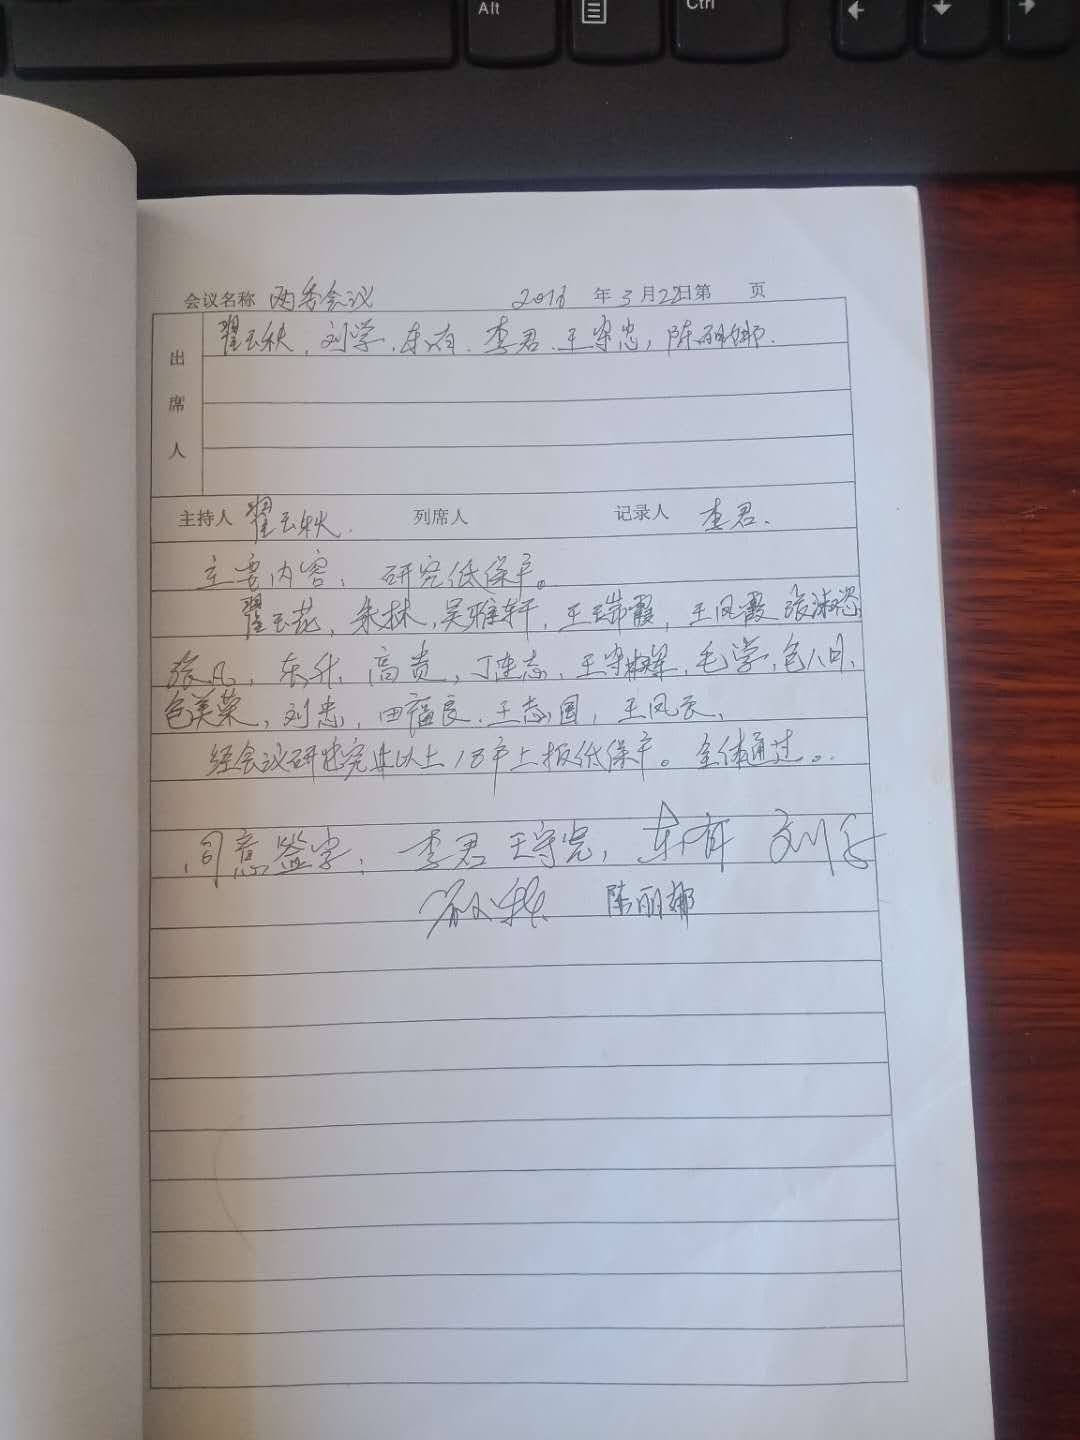 Alt
Ctrl
会议名称 两委会议 年 3 月 22日第 页
出席人
翟玉秋、刘学、东有、李君、王守忠、陈丽娜.
主持人 翟玉秋. 列席人 记录人 李君.
主要内容: 研究低保户。
翟玉花, 朱林, 吴雅轩, 王瑞霞, 王凤霞
张凡, 东升, 高贵, 丁连志, 毛学,
包美荣, 刘忠, 田福良、王志国, 王凤
经会议研究 以上18户上报低保户。全体通过。
同意签字: 李君 东有 刘
陈丽娜